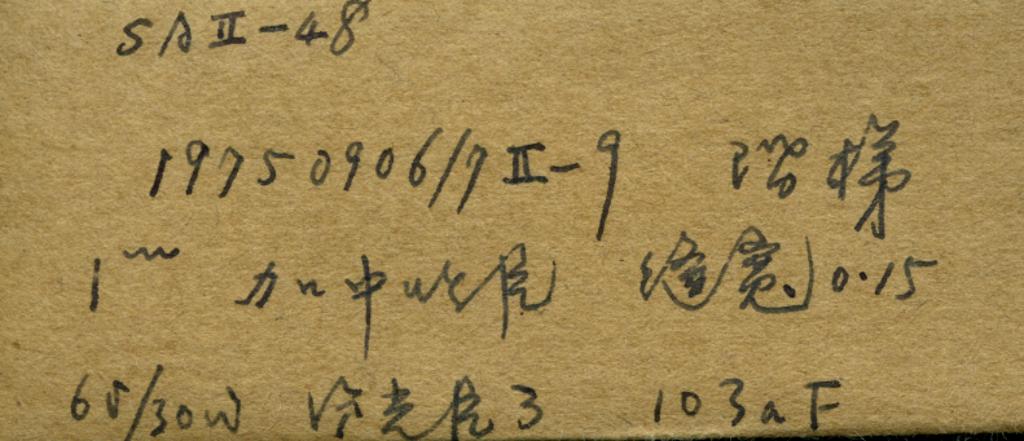 SAII-48
19750906/7 II-9 阶梯
1ᵐ 加中性片 缝宽 0.15
65/30W 滤光片3 103aF